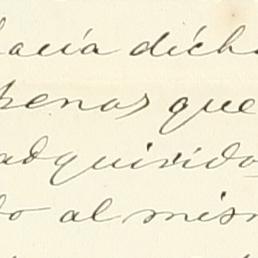 hacía dich
penas que
adquirido
do al mism